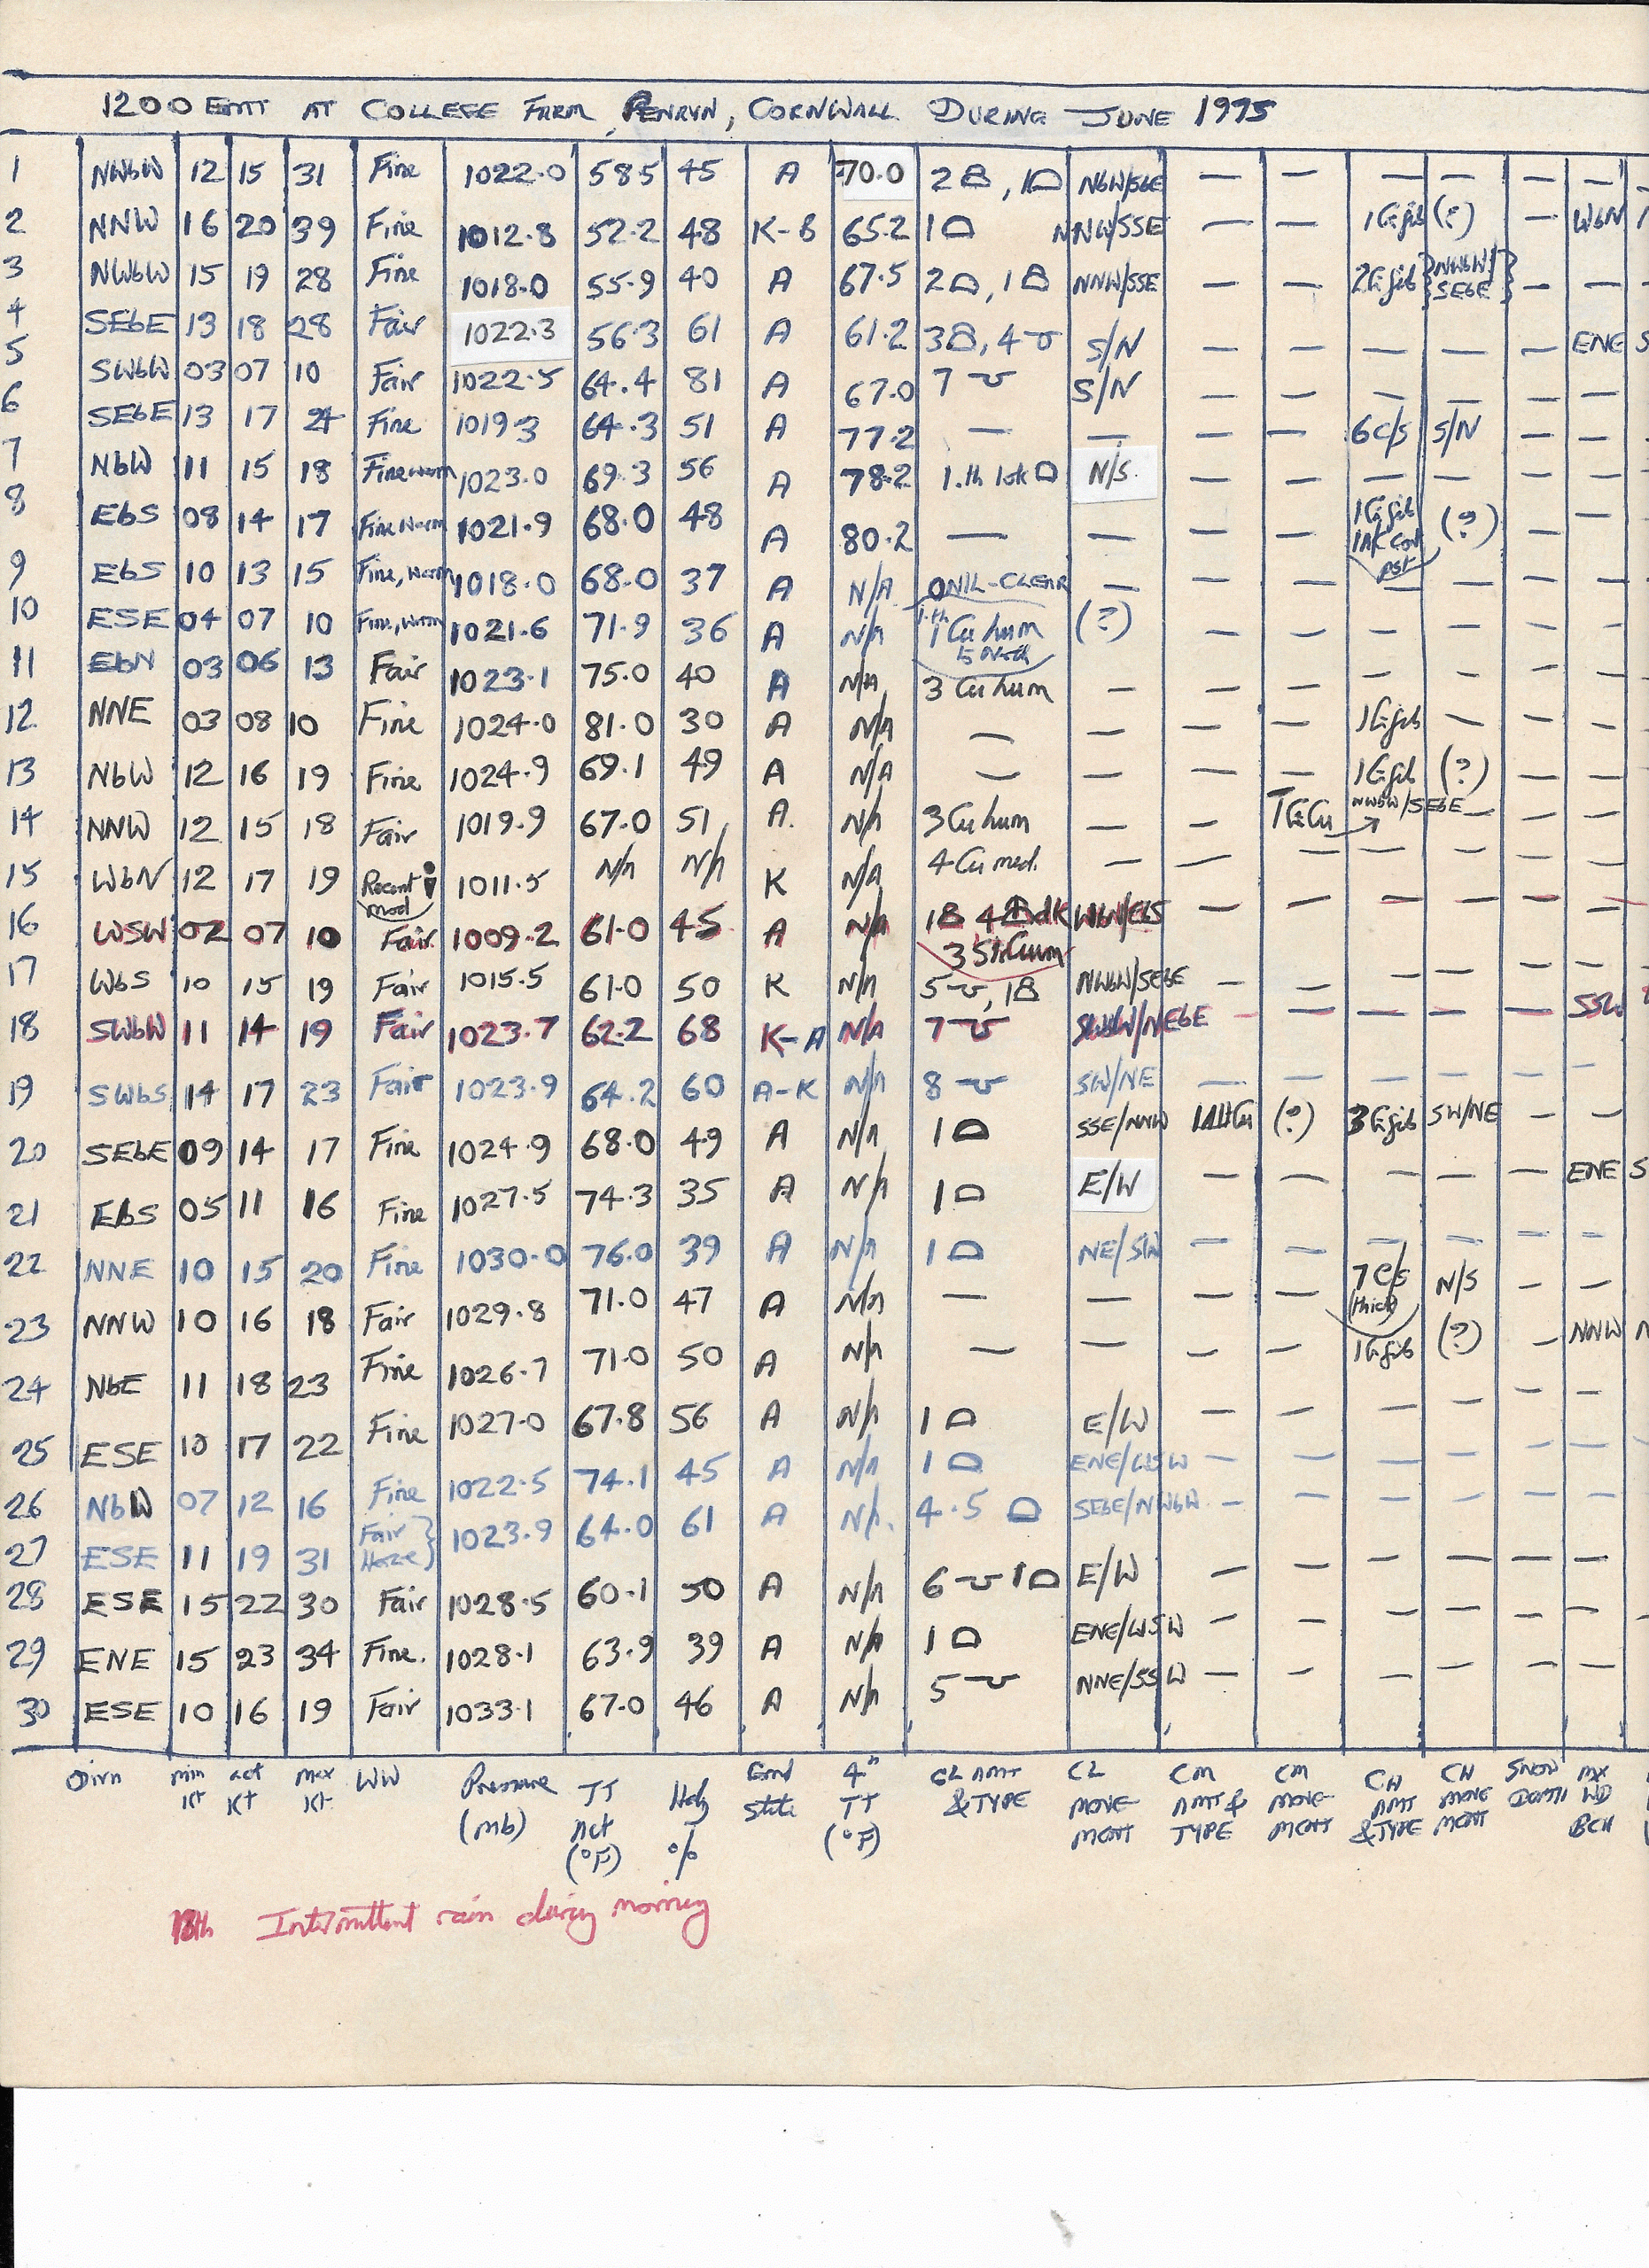 1200 GMT AT COLLEGE FARM, PENRYN, CORNWALL DURING JUNE 1975
1 NWbW 12 15 31 Fine 1022.0 58.5 45 A 70.0 2 , 1 NbW/SbE — — — — — —
2 NNW 16 20 39 Fine 1012.8 52.2 48 K-B 65.2 1 NNW/SSE — — 1 (?) — WbN
3 NWbW 15 19 28 Fine 1018.0 55.9 40 A 67.5 2 , 1 NNW/SSE — — 2 {NWbW/SEbE} — —
4 SEbE 13 18 28 Fair 1022.3 56.3 61 A 61.2 3 , 4 S/N — — — — — ENE S
5 SWbW 03 07 10 Fair 1022.5 64.4 81 A 67.0 7 S/N — — — — — —
6 SEbE 13 17 24 Fine 1019.3 64.3 51 A 77.2 — — — — 6 C/S S/N — —
7 NbW 11 15 18 Fine warm 1023.0 69.3 56 A 78.2 1.th 1ok N/S. — — — — — —
8 EbS 08 14 17 Fine Warm 1021.9 68.0 48 A 80.2 — — — — 1 (?) — —
9 EbS 10 13 15 Fine, Warm 1018.0 68.0 37 A N/A 0NIL-CLEAR — — — — — — —
10 ESE 04 07 10 Fine, Warm 1021.6 71.9 36 A N/A 1 Cu hum to North (?) — — — — — —
11 EbN 03 06 13 Fair 1023.1 75.0 40 A N/A 3 Cu hum — — — — — — —
12 NNE 03 08 10 Fine 1024.0 81.0 30 A N/A — — — — 1 — — —
13 NbW 12 16 19 Fine 1024.9 69.1 49 A N/A — — — — 1 (?) — —
14 NNW 12 15 18 Fair 1019.9 67.0 51 A. N/A 3 Cu hum — — NWbW/SEbE —
15 WbN 12 17 19 Recent mod 1011.5 N/A N/A K N/A 4 Cu med. — — — — — — —
16 WSW 02 07 10 Fair. 1009.2 61.0 45 A N/A 1 4 dk 3 WbN/EbS — — — — — —
17 WbS 10 15 19 Fair 1015.5 61.0 50 K N/A 5 , 1 NWbW/SEbE — — — — — —
18 SWbW 11 14 19 Fair 1023.7 62.2 68 K-A N/A 7 SWbW/NEbE — — — — — SSW
19 SWbS 14 17 23 Fair 1023.9 64.2 60 A-K N/A 8 SW/NE — — — — — —
20 SEbE 09 14 17 Fine 1024.9 68.0 49 A N/A 1 SSE/NNW (?) 3 SW/NE — —
21 EbS 05 11 16 Fine 1027.5 74.3 35 A N/A 1 E/W — — — — — ENE S
22 NNE 10 15 20 Fine 1030.0 76.0 39 A N/A 1 NE/SW — — — — — —
23 NNW 10 16 18 Fair 1029.8 71.0 47 A N/A — — — — 7 C/S (thick) N/S — —
24 NbE 11 18 23 Fine 1026.7 71.0 50 A N/A — — — — 1 (?) — NNW N
25 ESE 10 17 22 Fine 1027.0 67.8 56 A N/A 1 E/W — — — — — —
26 NbW 07 12 16 Fine 1022.5 74.1 45 A N/A 1 ENE/WSW — — — — — —
27 ESE 11 19 31 Fair Haze} 1023.9 64.0 61 A N/A. 4.5 SEbE/NWbW — — — — — —
28 ESE 15 22 30 Fair 1028.5 60.1 50 A N/A 6 1 E/W — — — — — —
29 ENE 15 23 34 Fine. 1028.1 63.9 39 A N/A 1 ENE/WSW — — — — — —
30 ESE 10 16 19 Fair 1033.1 67.0 46 A N/A 5 NNE/SSW — — — — — —
Dirn min Kt act Kt max Kt. WW Pressure (mb) TT act (°F) Hdy % Grnd state 4" TT (°F) CL AMT & TYPE CL MOVEMENT CM AMT & TYPE CM MOVEMENT CH AMT & TYPE CH MOVEMENT SNOW DEPTH MX WD BCH
18th Intermittent rain during morning